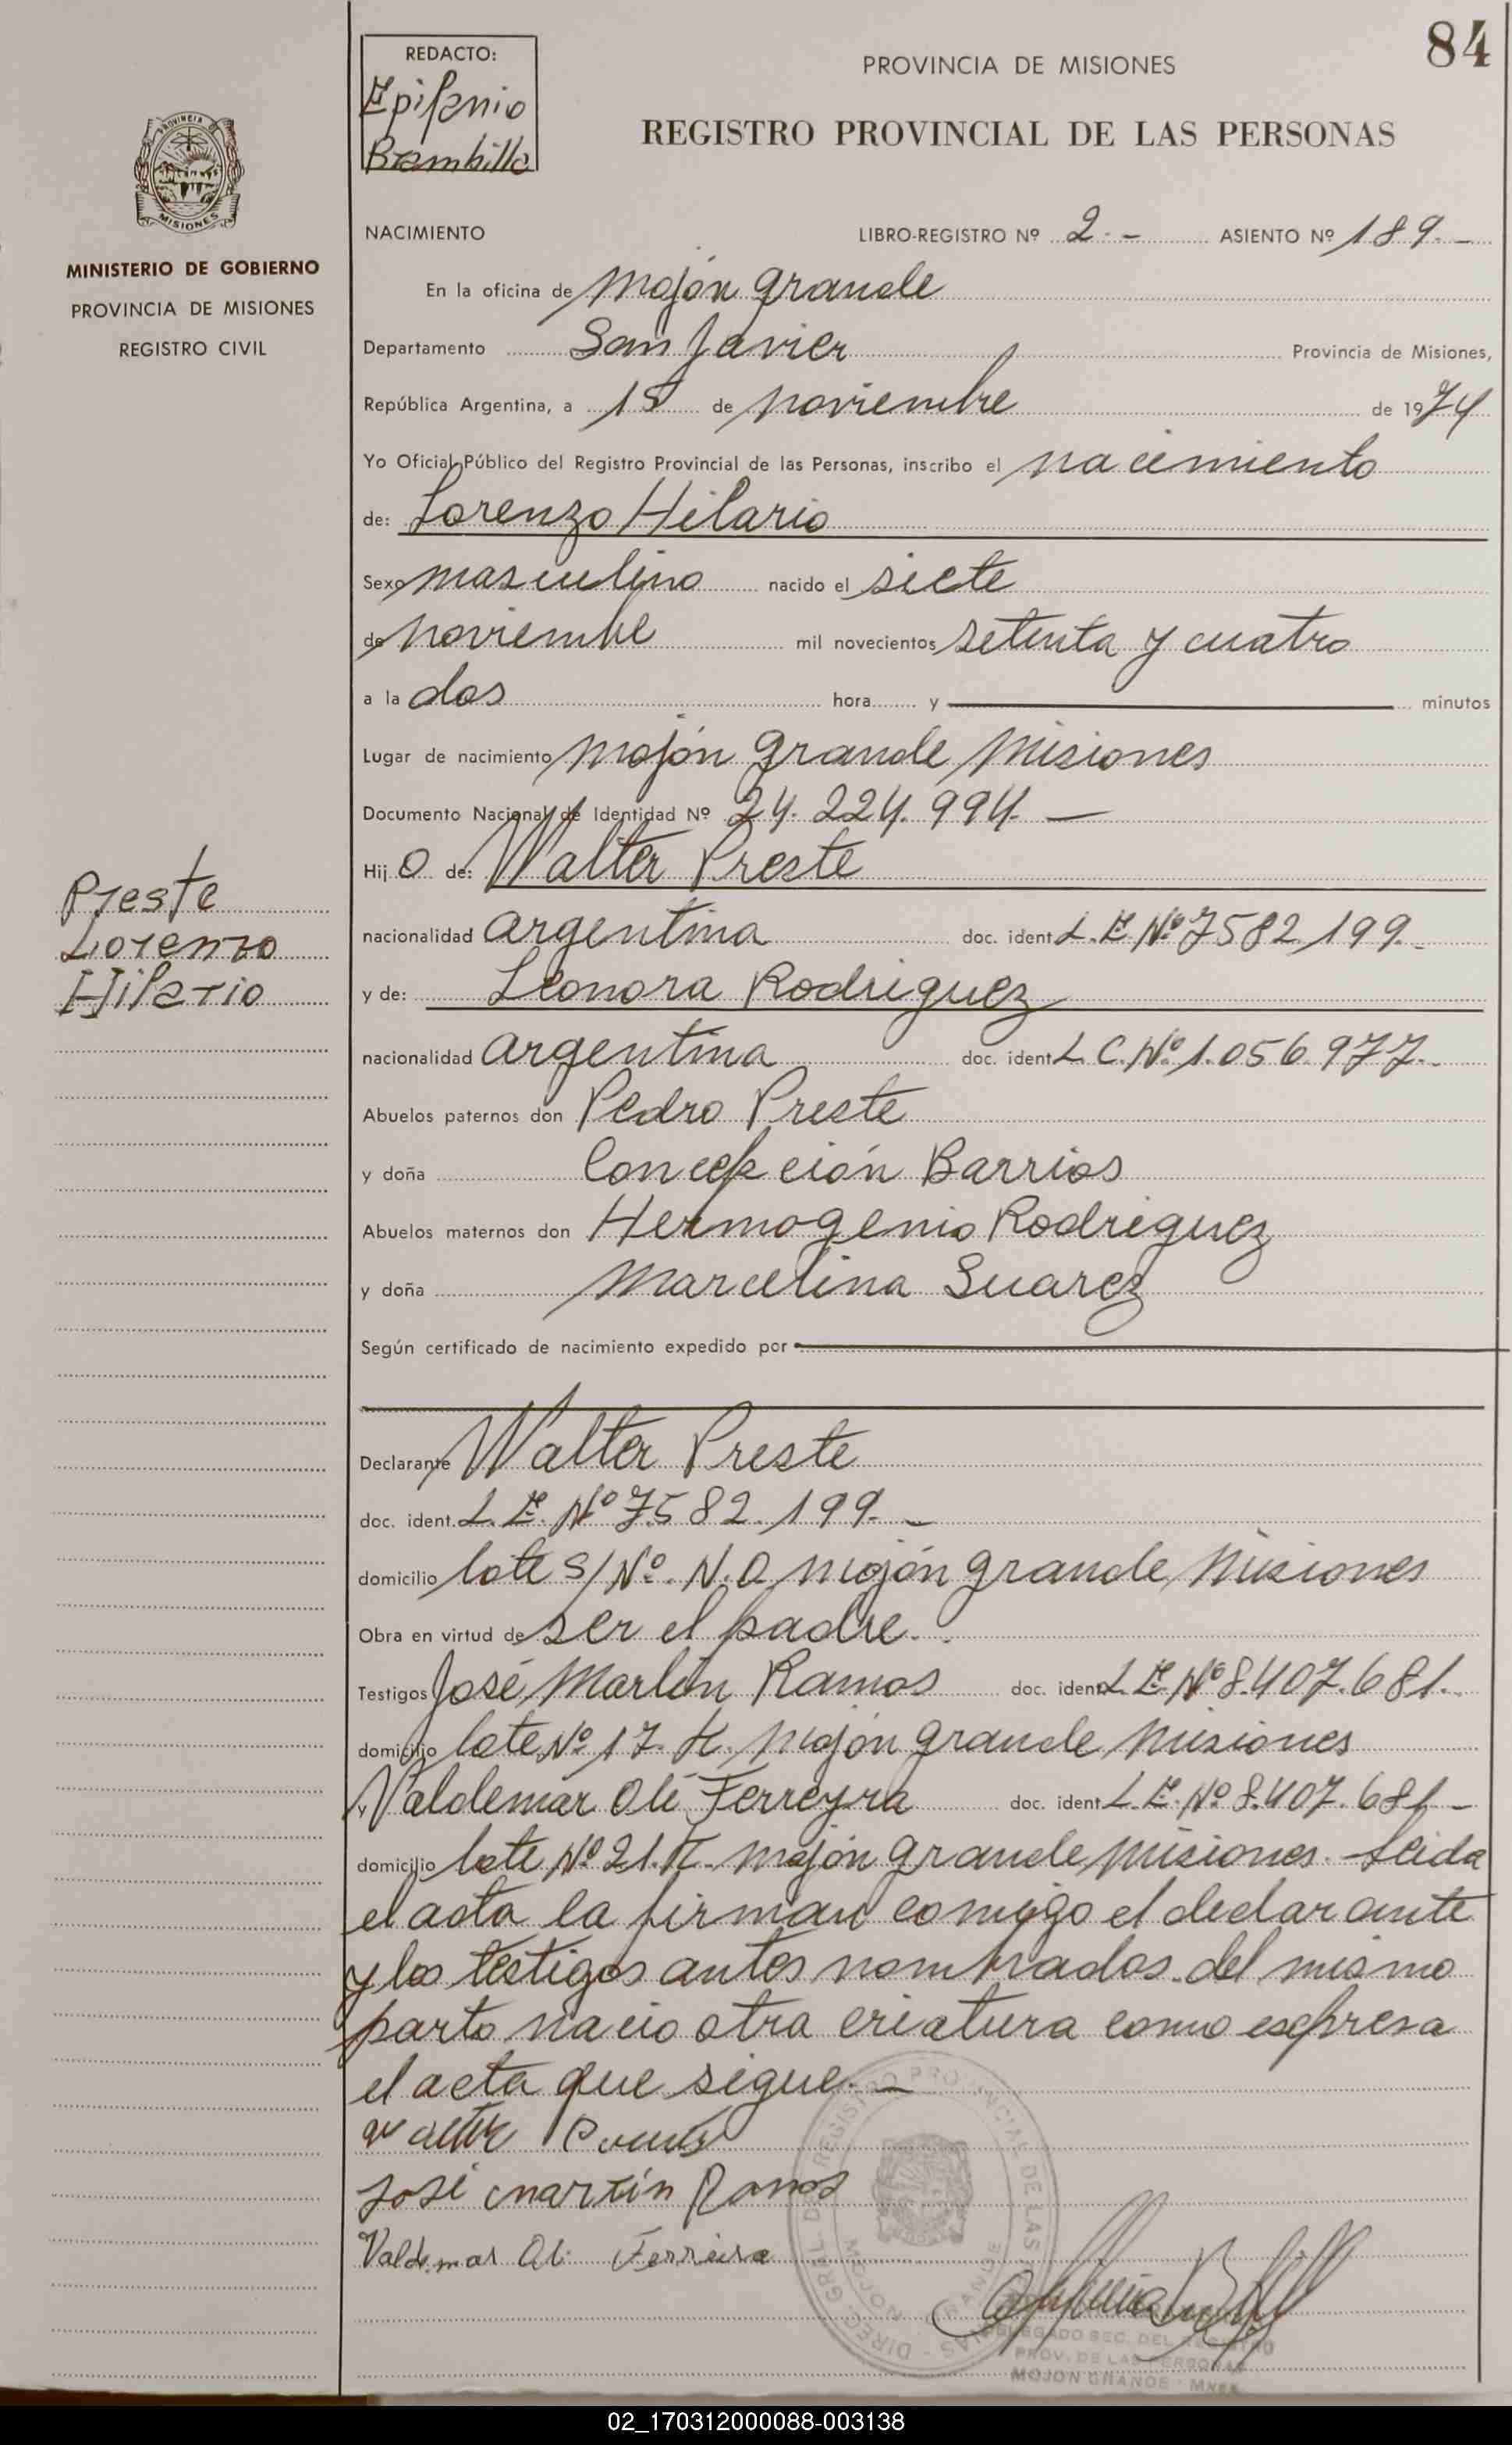 84
REDACTO:
Epifanio
Brambilla
PROVINCIA DE MISIONES
REGISTRO PROVINCIAL DE LAS PERSONAS
PROVINCIA DE
MISIONES
MINISTERIO DE GOBIERNO
PROVINCIA DE MISIONES
REGISTRO CIVIL
NACIMIENTO LIBRO-REGISTRO Nº 2.- ASIENTO Nº 189.-
En la oficina de Mojón grande
Departamento San Javier Provincia de Misiones,
República Argentina, a 18 de noviembre de 1974
Yo Oficial Público del Registro Provincial de las Personas, inscribo el nacimiento
de: Lorenzo Hilario
Sexo masculino nacido el siete
de noviembre mil novecientos setenta y cuatro
a la dos hora y minutos
Lugar de nacimiento Mojón grande Misiones
Documento Nacional de Identidad Nº 24.224.994.—
Hij o de: Walter Preste
nacionalidad argentina doc. ident L.E. Nº 7582.199.-
y de: Leonora Rodriguez
nacionalidad argentina doc. ident L.C. Nº 1.056.977.-
Abuelos paternos don Pedro Preste
y doña Concepción Barrios
Abuelos maternos don Hermogenio Rodriguez
y doña Marcelina Suarez
Según certificado de nacimiento expedido por
Preste
Lorenzo
Hilario
Declarante Walter Preste
doc. ident. L.E. Nº 7582.199.-
domicilio lote S/Nº. N.O. mojón grande Misiones
Obra en virtud de ser el padre..
Testigos José Martin Ramos doc. ident L.E. Nº 8.407.681.
domicilio lote Nº 17. mojón grande Misiones
y Valdemar Oli Ferreyra doc. ident L.E. Nº 8.407.681-
domicilio lote Nº 21. mojón grande misiones. Leida
el acta la firman comigo el declarante
y los testigos antes nombrados. del mismo
parto nacio otra criatura como espresa
el acta que sigue.-
José Martín Ramos
Valdemar Oli Ferreira
DIREC. GRAL. DEL REGISTRO PROVINCIAL DE LAS PERSONAS
MOJON GRANDE
DELEGADO SEC. DEL REGISTRO
PROV. DE LAS PERSONAS
MOJON GRANDE - MNES.
02_170312000088-003138